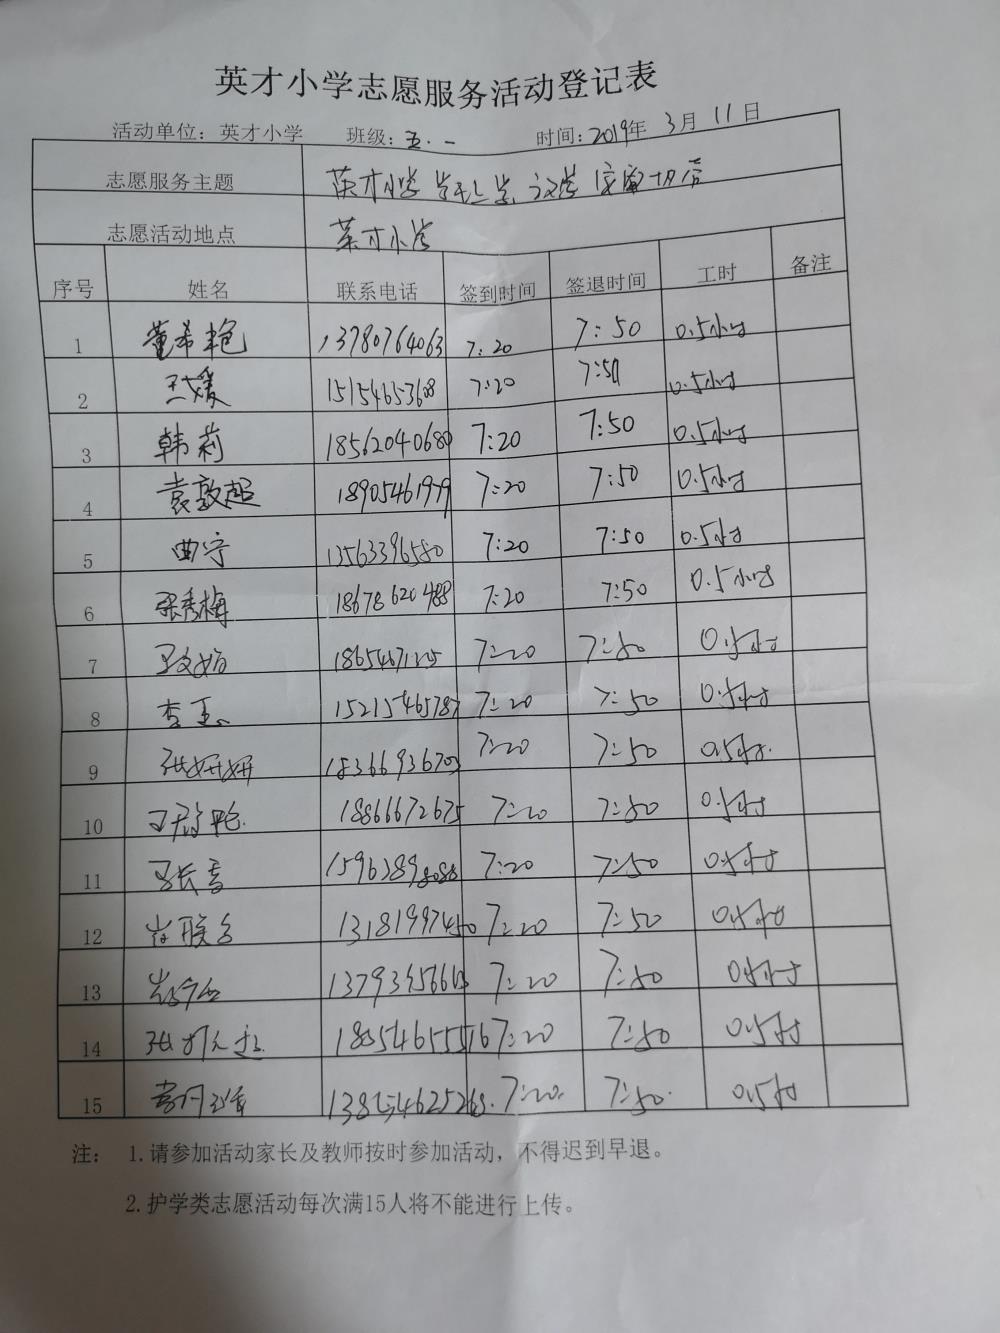 英才小学志愿服务活动登记表
活动单位：英才小学 班级：五.一 时间：2019年 3月 11日
志愿服务主题 英才小学
志愿活动地点 英才小学
序号 姓名 联系电话 签到时间 签退时间 工时 备注
1 13780764063 7:20 7:50 0.5小时
2 王媛 7:20 7:50 0.5小时
3 韩莉 18562040680 7:20 7:50 0.5小时
4 袁敦超 18905461979 7:20 7:50 0.5小时
5 曲宁 13563396580 7:20 7:50 0.5小时
6 张秀梅 18678620488 7:20 7:50 0.5小时
7 7:20 7:50 0.5小时
8 15215465787 7:20 7:50 0.5小时
9 张妍妍 18366936703 7:20 7:50 0.5小时
10 18866672675 7:20 7:50 0.5小时
11 15963898088 7:20 7:50 0.5小时
12 13181997450 7:20 7:50 0.5小时
13 7:20 7:50 0.5小时
14 18054655516 7:20 7:50 0.5小时
15 7:20 7:50 0.5小时
注： 1.请参加活动家长及教师按时参加活动，不得迟到早退。
2.护学类志愿活动每次满15人将不能进行上传。